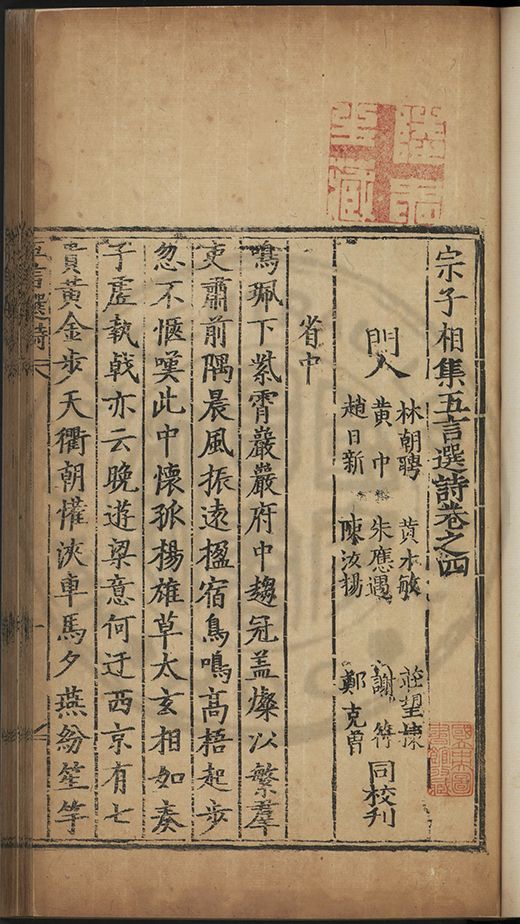 宗子相集五言選詩卷之四
林朝聘 黃 敏 莊望棟
門人 黃中 朱應遇 謝符 同校刊
趙日新 陳汝揚 鄭克曾
省中
鳴珮下紫霄巖巖府中趨冠盖燦以繁羣
吏肅前隅晨風振遠楹宿鳥鳴高梧起步
忽不愜嘆此中懷孤楊雄草太玄相如奏
子虛執戟亦云晚遊梁意何迂西京有七
貴黃金步天衢朝懽浹車馬夕燕紛笙竽
五言選詩